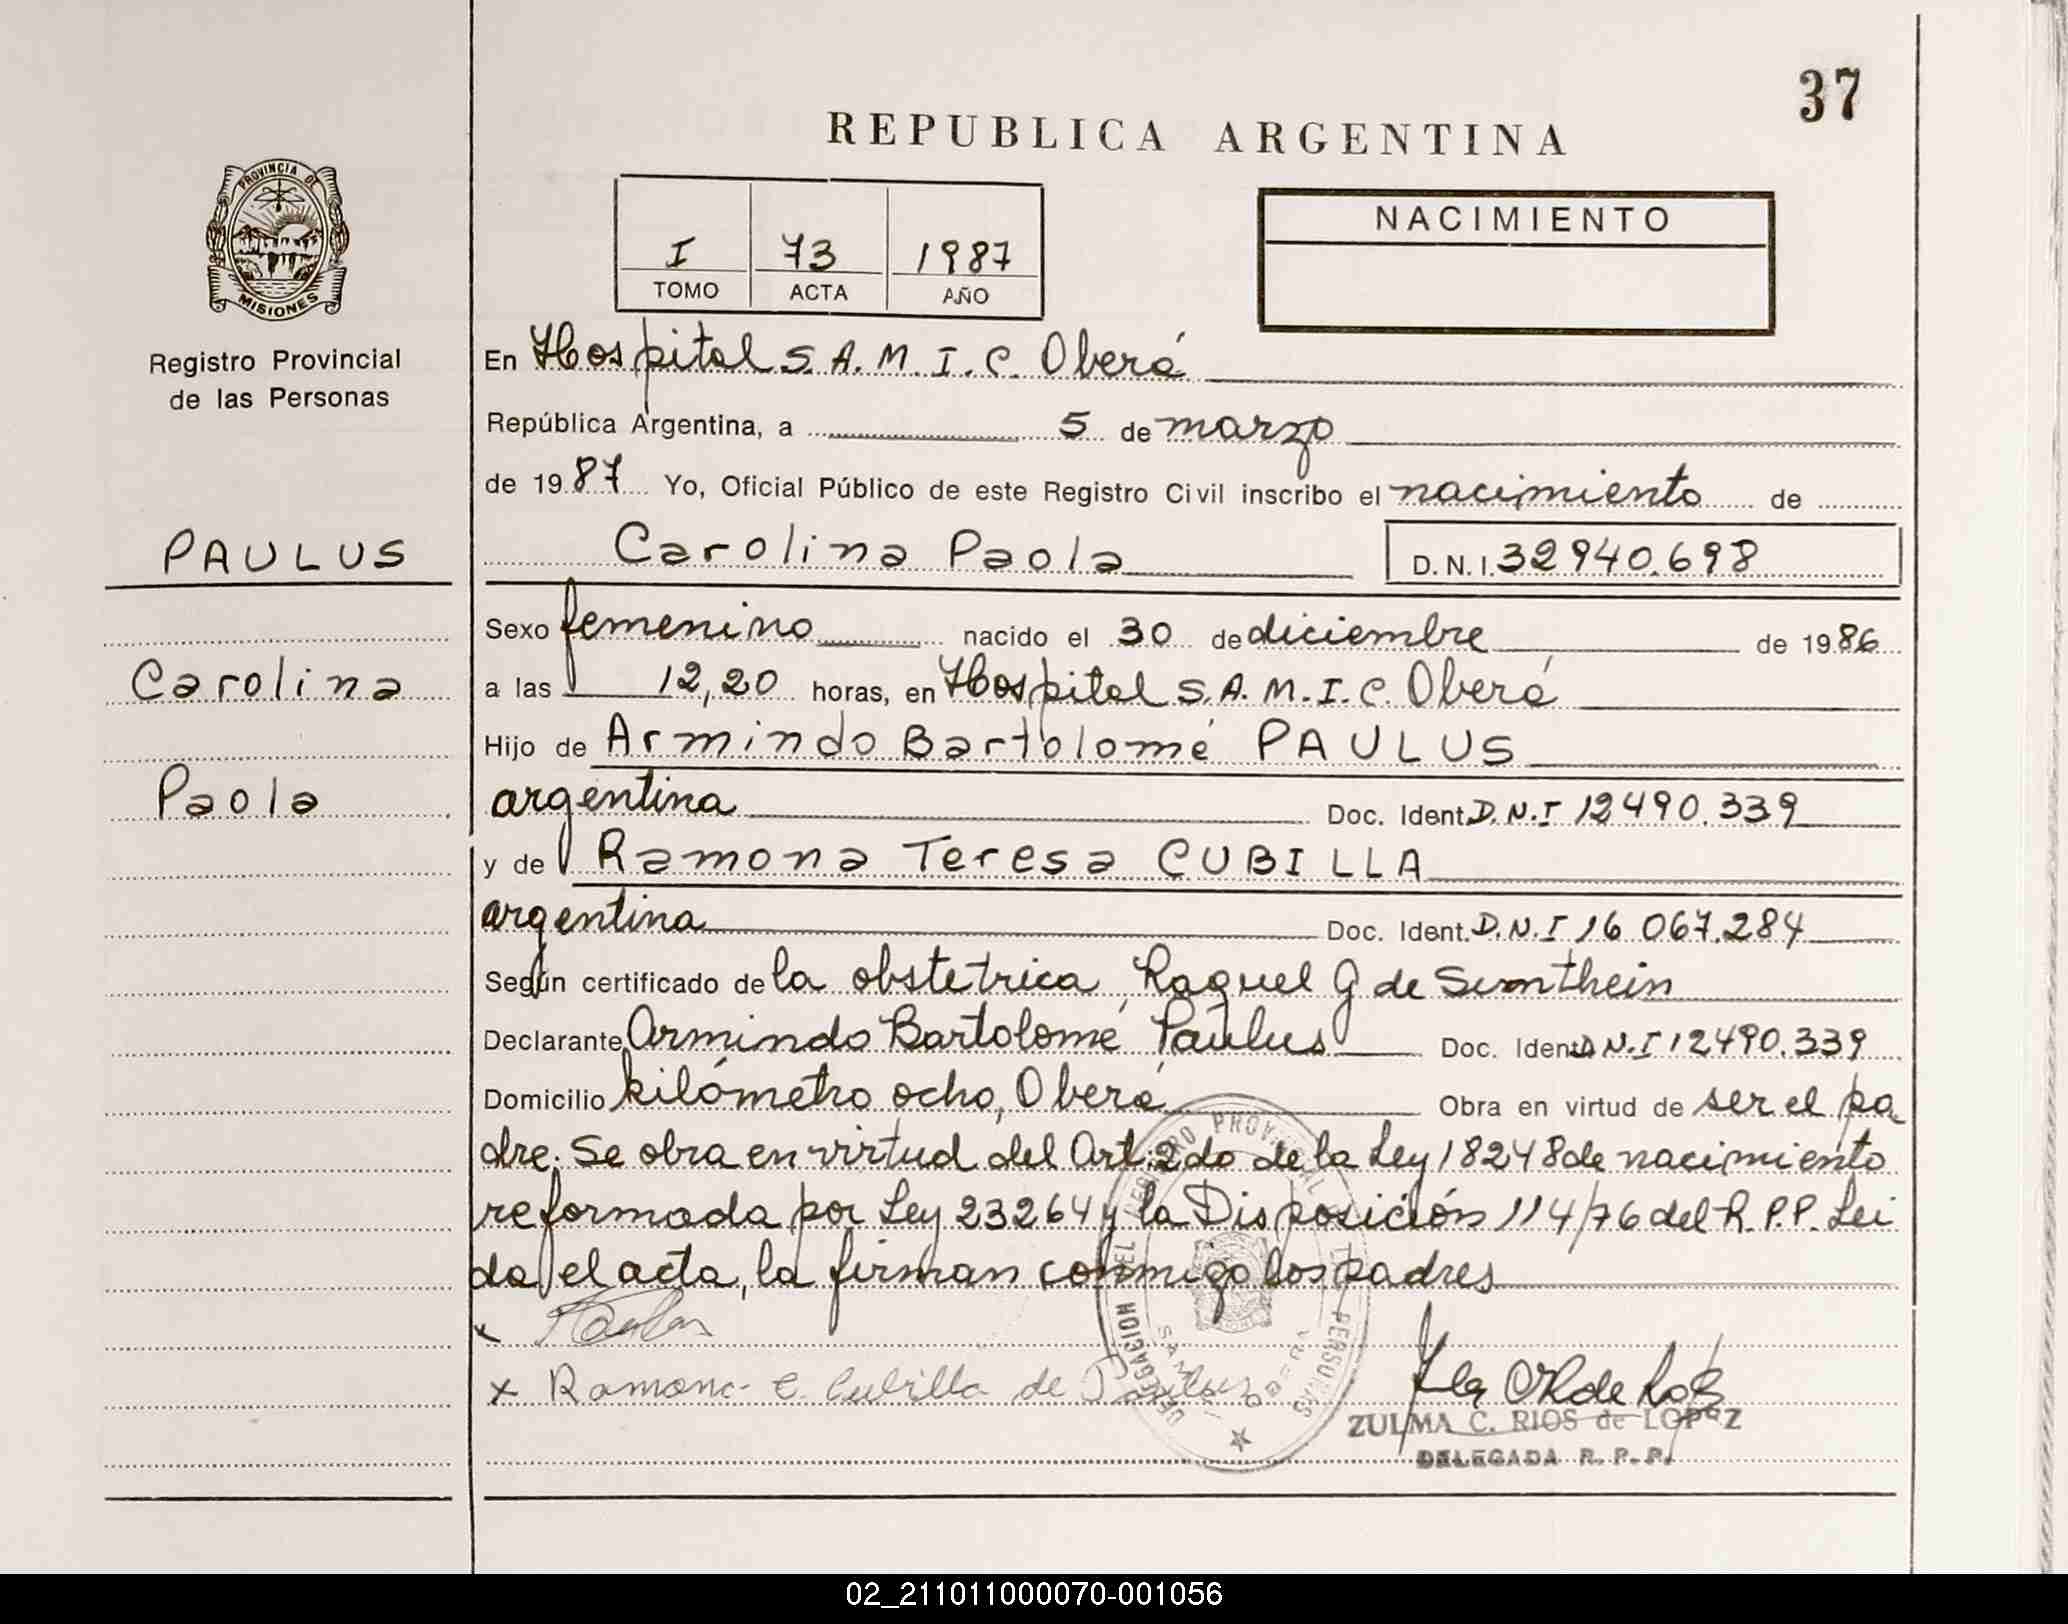 37
REPUBLICA ARGENTINA
PROVINCIA DE
MISIONES
Registro Provincial
de las Personas
I 73 1987
TOMO ACTA AÑO
NACIMIENTO
En Hospital S.A.M.I.C. Oberá
República Argentina, a 5 de marzo
de 1987 Yo, Oficial Público de este Registro Civil inscribo el nacimiento de
PAULUS
Carolina Paola D.N.I. 32940.698
Sexo femenino nacido el 30 de diciembre de 1986
Carolina
a las 12,20 horas, en Hospital S.A.M.I.C. Oberá
Hijo de Armindo Bartolomé PAULUS
Paola
argentina Doc. Ident. D.N.I 12490.339
y de Ramona Teresa CUBILLA
argentina Doc. Ident. D.N.I 16 067.284
Según certificado de la obstetrica, Raquel G de
Declarante Armindo Bartolomé Paulus Doc. Ident. D N.I 12490.339
Domicilio kilómetro ocho, Oberá Obra en virtud de ser el pa
dre. Se obra en virtud del Art. 2do de la Ley 18248 de nacimiento
reformada por Ley 23264 y la Disposición 114/76 del R.P.P. Lei
da el acta, la firman conmigo los padres
x
x Ramona T. Cubilla de Paulus
DELEGACION DEL REGISTRO PROVINCIAL DE LAS PERSONAS
OBERA
ZULMA C. RIOS de LOPEZ
DELEGADA R.P.P.
02_211011000070-001056